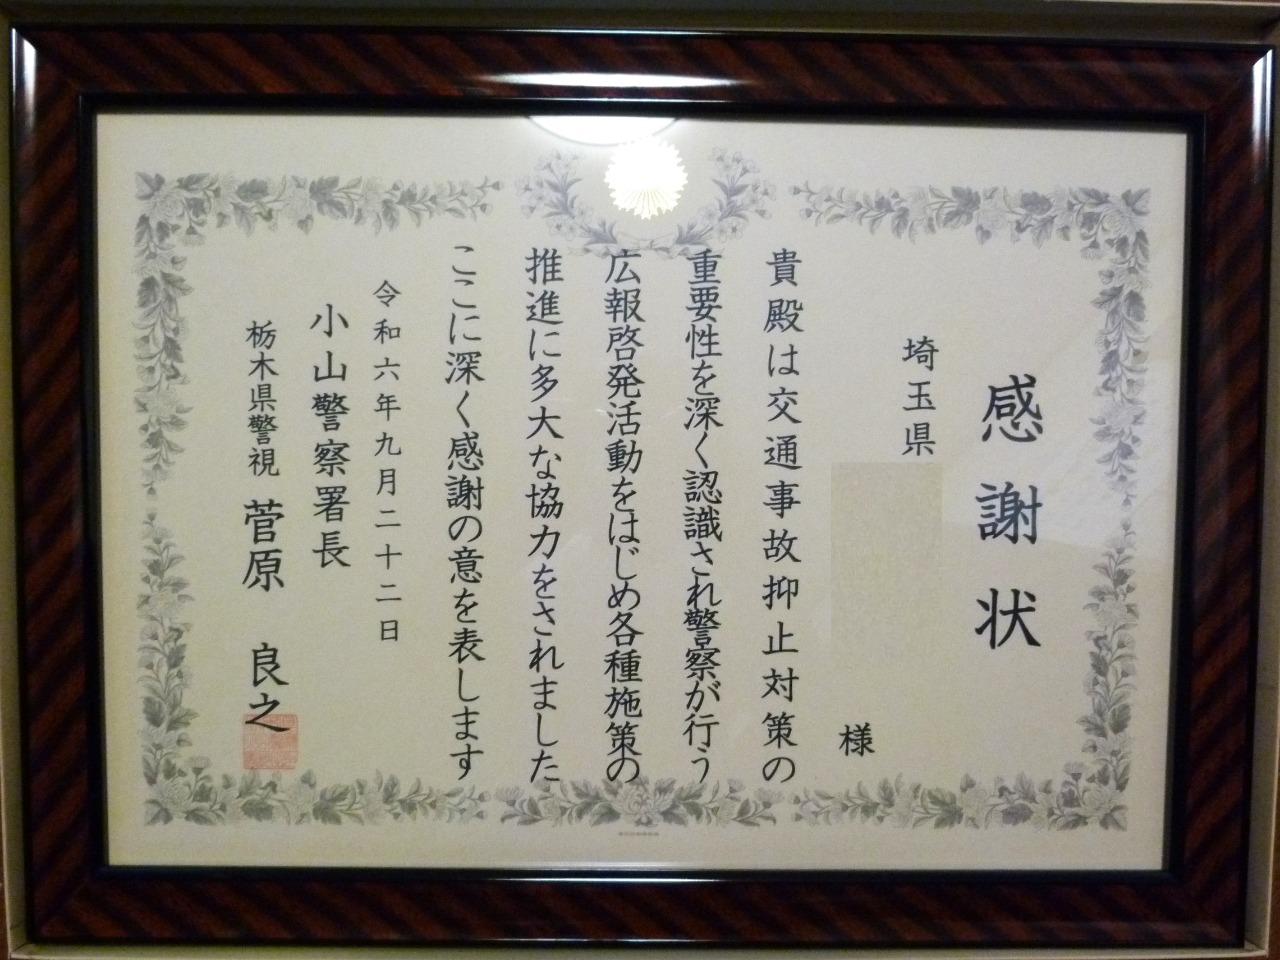 感謝状
埼玉県
様
貴殿は交通事故抑止対策の
重要性を深く認識され警察が行う
広報啓発活動をはじめ各種施策の
推進に多大な協力をされました
ここに深く感謝の意を表します
令和六年九月二十二日
小山警察署長
栃木県警視 菅原 良之